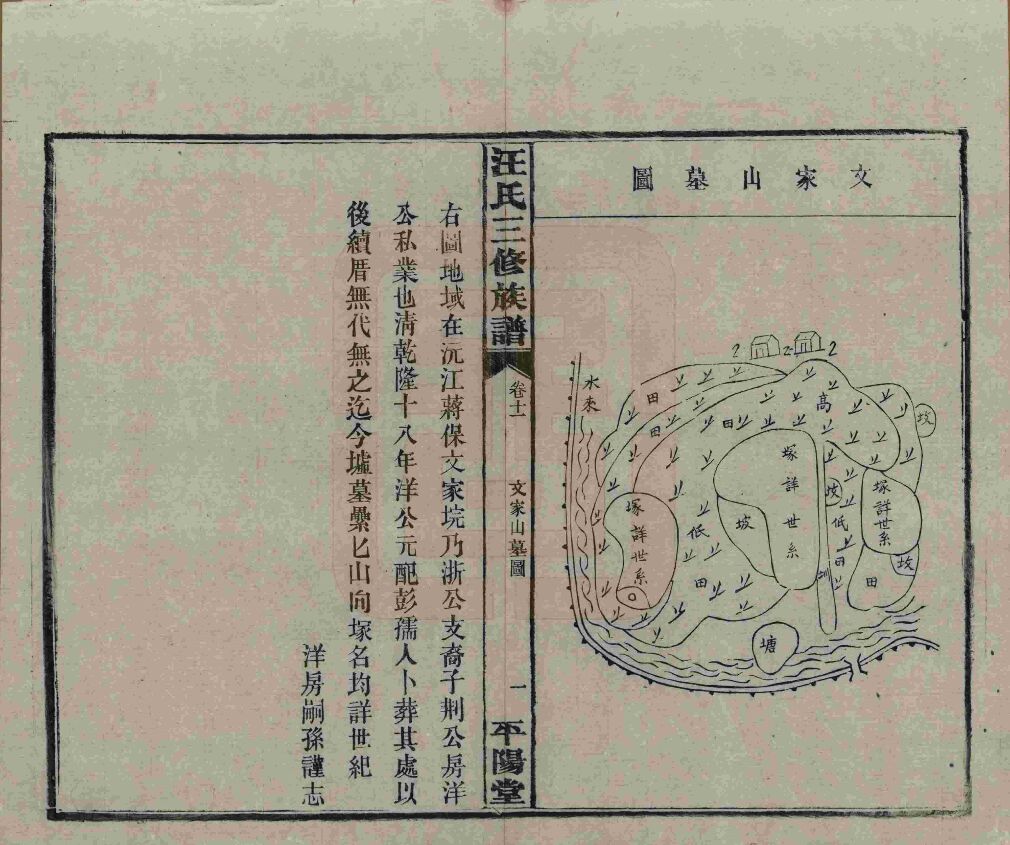 文家山墓圖
水來
田
田
田
高
坟
塚詳世系
坡
坟
低
田
圳
塚詳世系
坟
田
塚詳世系
低
田
塘
汪氏三修族譜
卷十一
文家山墓圖
一
平陽堂
右圖地域在沅江蔣保文家垸乃浙公支裔子荆公房洋
公私業也清乾隆十八年洋公元配彭孺人卜葬其處以
後續厝無代無之迄今墟墓纍匕山向塚名均詳世紀
洋房嗣孫謹志